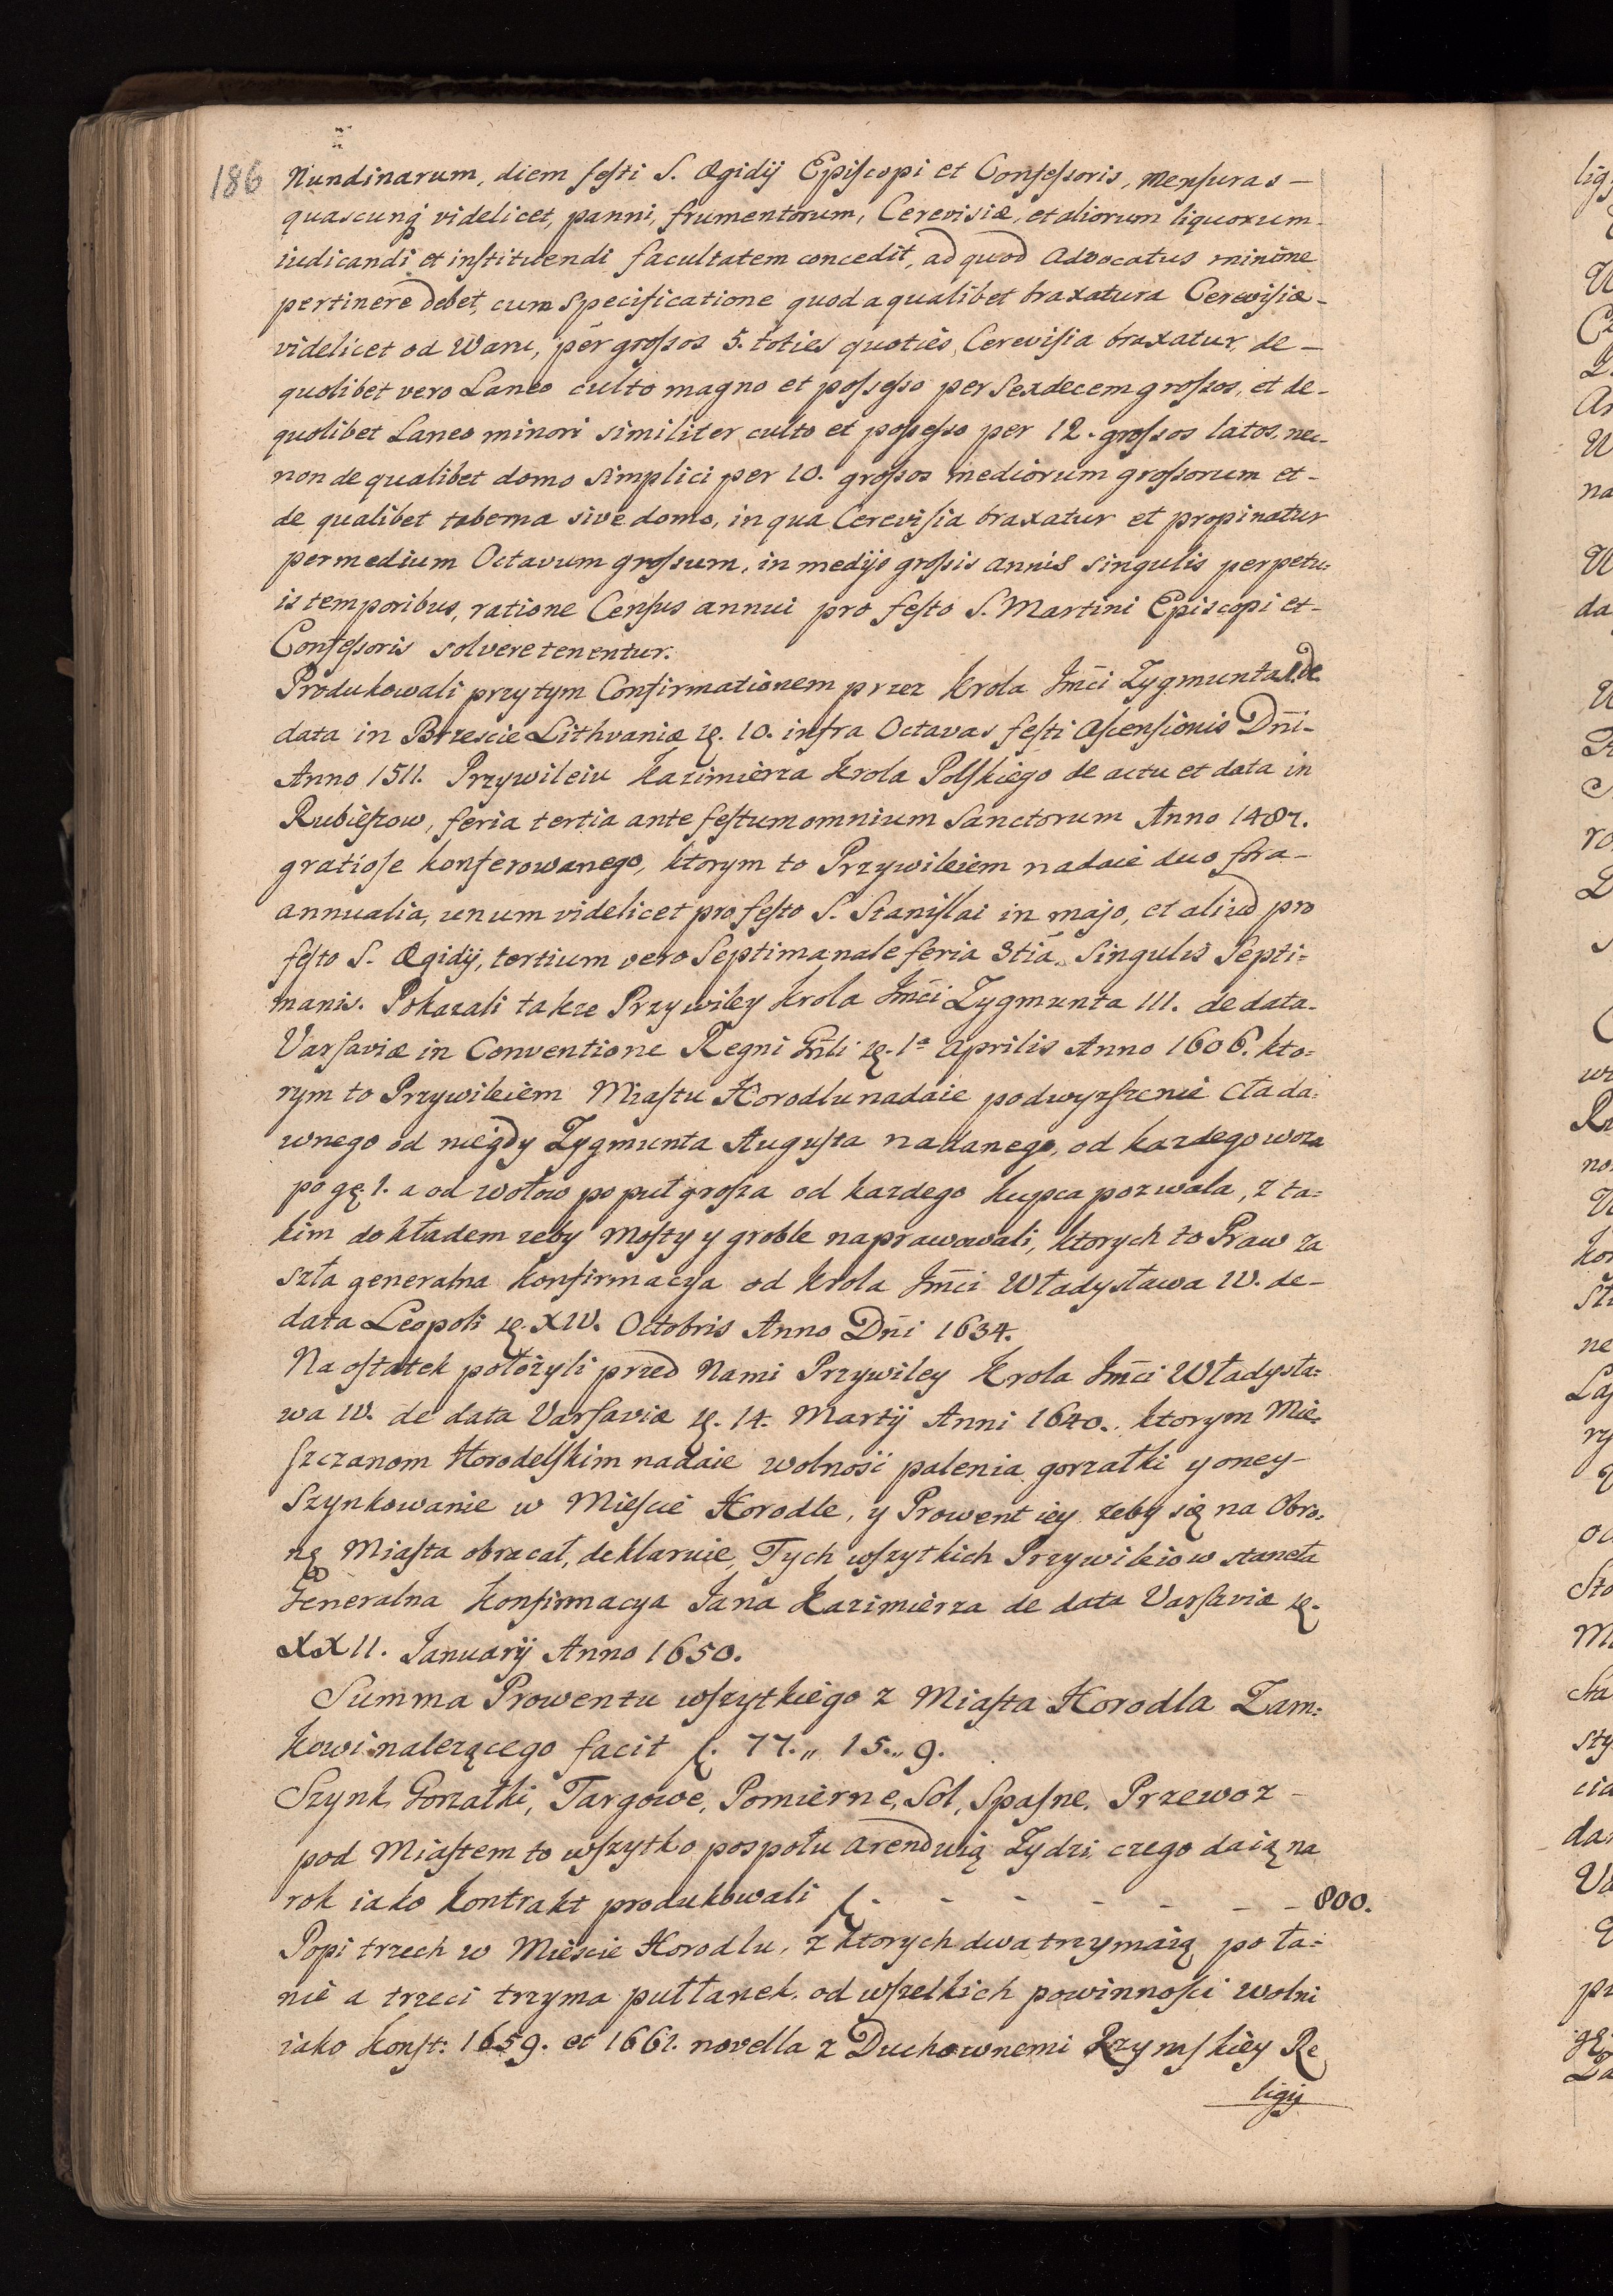 186 Nundinarum, diem festi S. Ægidÿ Episcopi et Confessoris, mensuras –
quascunq; videlicet, panni, frumentorum, Cerevisiæ, et aliorum liquorum –
iudicandi et instituendi facultatem concedit, ad quod Advocatus minime
pertinere debet, cum Specificatione quod a qualibet braxatura Cerevisiæ –
videlicet od Waru, per grossos 5. toties quoties, Cerevisia braxatur, de –
quolibet vero Laneo culto magno et possesso per Sexdecem grossos, et de –
quolibet Laneo minori similiter culto et possesso per 12. grossos latos, nec –
non de qualibet domo simplici per 10. grossos mediorum grossorum et –
de qualibet taberna sive domo, in qua Cerevisia braxatur et propinatur
per medium Octavum grossum, in medÿs grossis annis singulis perpetu:
is temporibus, ratione Census annui pro festo S. Martini Episcopi et –
Confessoris solvere tenentur.
Produkowali przytym Confirmationem przez Krola Jm̃ci Zygmunta I. de
data in Brzescie Lithvaniæ 10. infra Octavas festi Ascensionis Dñi –
Anno 1511. Przywileiu Kazimierza Krola Polskiego de actu et data in
Rubieszow, feria tertia ante festum omnium Sanctorum Anno 1487.
gratiose konferowanego, ktorym to Przywileiem nadaie duo fora –
annualia, unum videlicet pro festo S. Stanislai in majo, et aliud pro
festo S. Ægidÿ, tertium vero Septimanale feria 3tia. Singulis Septi:
manis. Pokazali takze Przywiley Krola Jm̃ci Zygmunta III. de data –
Varsaviæ in Conventione Regni Gñli 1a Aprilis Anno 1606. kto:
rym to Przywileiem Miastu Horodlu nadaie podwyzszenie Cła da:
wnego od niegdy Zygmunta Augusta nadanego, od kazdego woza
po gę. 1. a od wołow po puł grosza od kazdego kupca pozwala, z ta:
kim dokładem zeby Mosty y groble naprawowali, ktorych to Praw za
szła generalna konfirmacya od Krola Jm̃ci Władysława IV. de –
data Leopoli XIV. Octobris Anno Dñi 1634.
Na ostatek położyli przed Nami Przywiley Krola Jm̃ci Władysła:
wa IV. de data Varsaviæ 14. Martÿ Anni 1640. ktorym Mie:
szczanom Horodelskim nadaie wolnosci palenia gorzałki y oney –
Szynkowanie w Miescie Horodle, y Prowent iey zeby się na Obro:
nę Miasta obracał, deklaruie, Tych wszytkich Przywileiow staneła
Generalna Konfirmacya Jana Kazimierza de data Varsaviæ
XXII. Januarÿ Anno 1650.
Summa Prowentu wszytkiego z Miasta Horodla Zam:
kowi nalezącego facit f. 77. „ 15. „ 9.
Szynk Gorzałki, Targowe, Pomierne, Sol, Spasne, Przewoz –
pod Miastem to wszytko pospołu arenduią Zydzi czego daią na
rok iako kontrakt produkowali f. - - - - - - - 800.
Popi trzech w Miescie Horodlu, z ktorych dwa trzymaią po ła:
nie a trzeci trzyma pułłanek, od wszelkich powinnosci wolni
iako Konst: 1659. et 1661. novella z Duchownemi Rzymskiey Re
ligij